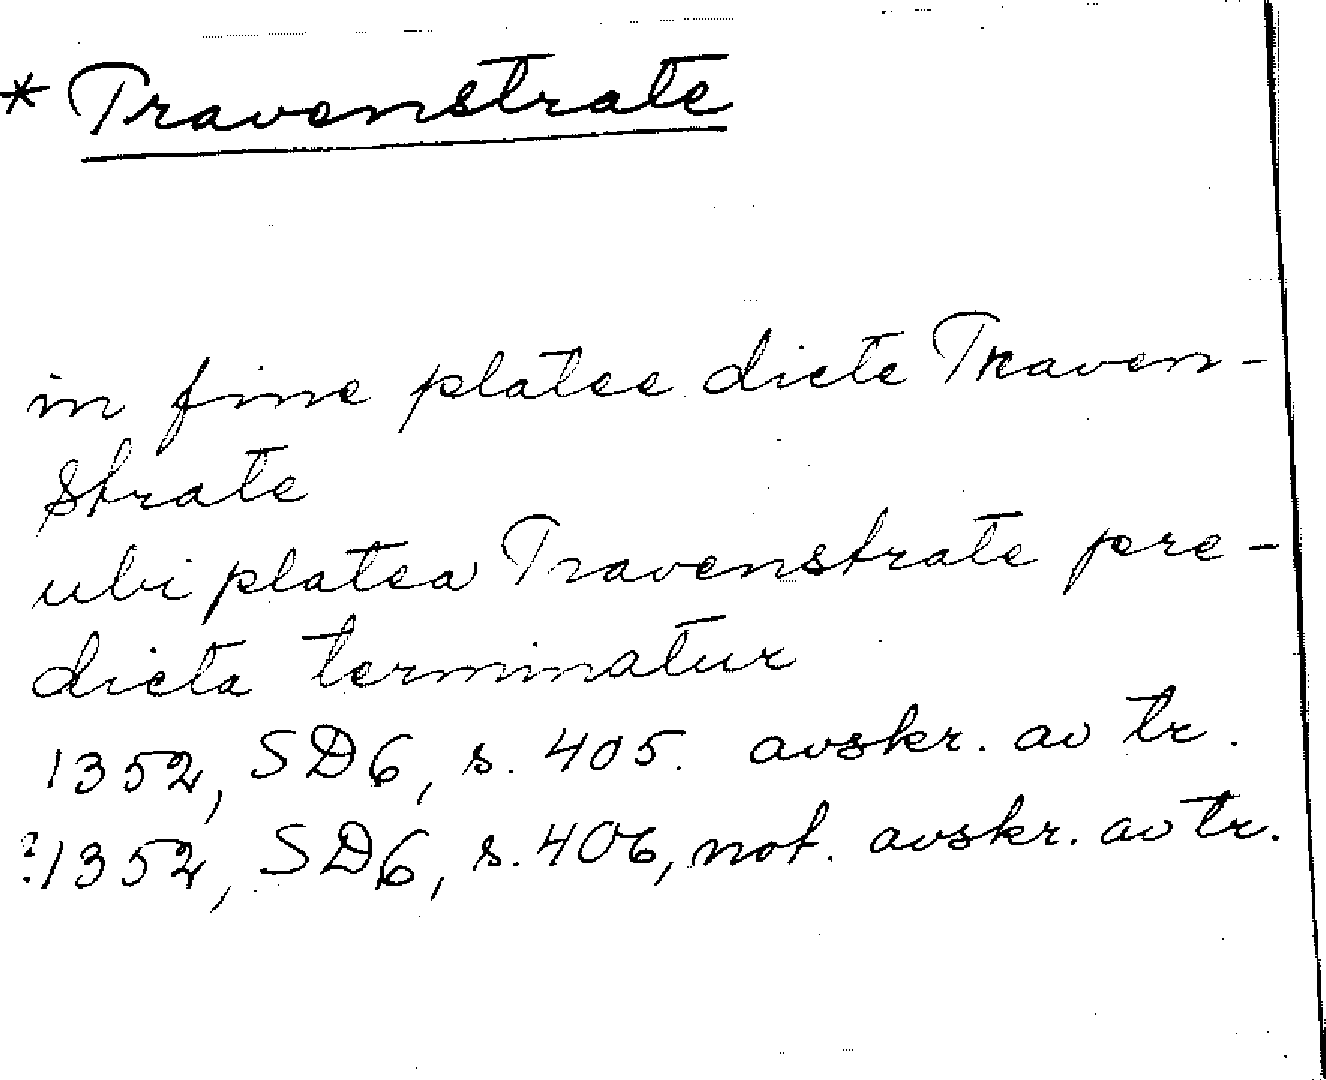 * Travenstrate
in fine platee dicte Traven-
strate
ubi platea Travenstrate pre-
dicta terminatur
1352, SD6, s. 405. avskr. av tr.
?1352, SD6, s. 406, not. avskr. av tr.